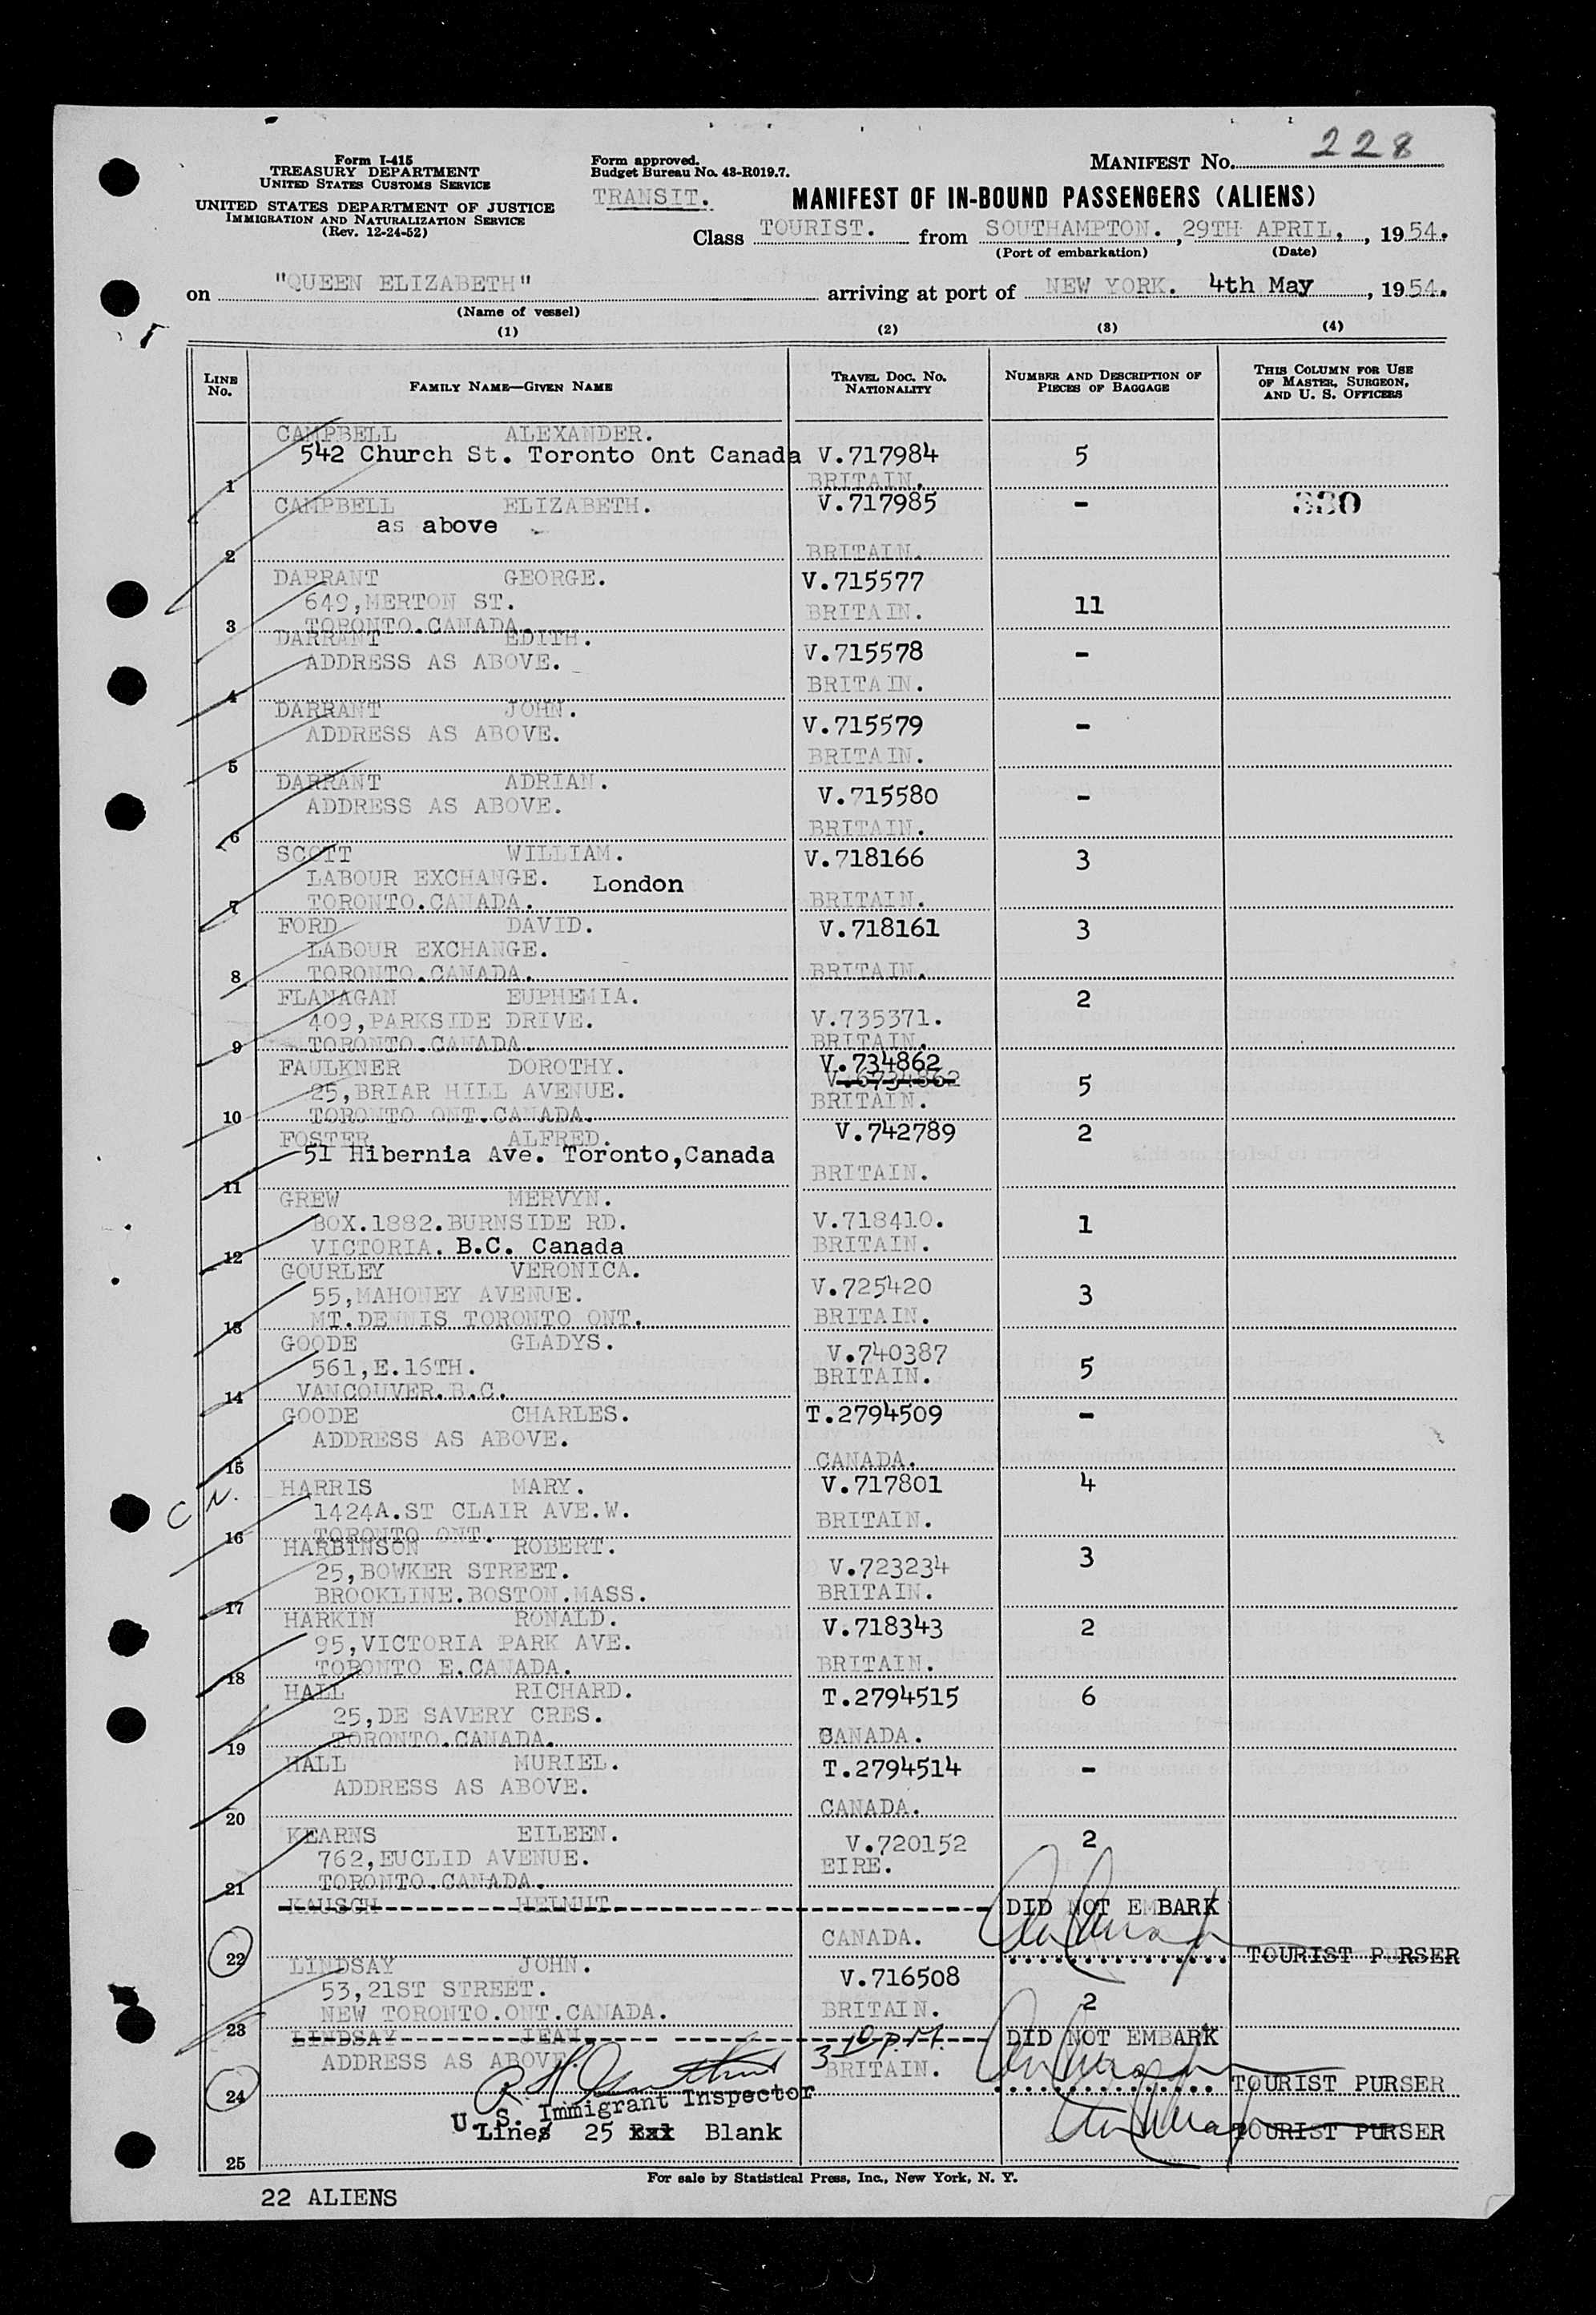 228
Form I-415
TREASURY DEPARTMENT
UNITED STATES CUSTOMS SERVICE
UNITED STATES DEPARTMENT OF JUSTICE
IMMIGRATION AND NATURALIZATION SERVICE
(Rev. 12-24-52)
Form approved.
Budget Bureau No. 43-R019.7.
MANIFEST NO.
TRANSIT. MANIFEST OF IN-BOUND PASSENGERS (ALIENS)
Class TOURIST. from SOUTHAMPTON. , 29TH APRIL. , 1954.
(Port of embarkation) (Date)
on "QUEEN ELIZABETH" arriving at port of NEW YORK. 4th May , 1954.
(Name of vessel)
(1) (2) (3) (4)
LINE NO. FAMILY NAME—GIVEN NAME TRAVEL DOC. NO. NATIONALITY NUMBER AND DESCRIPTION OF PIECES OF BAGGAGE THIS COLUMN FOR USE OF MASTER, SURGEON, AND U. S. OFFICERS
CAMPBELL ALEXANDER.
542 Church St. Toronto Ont Canada V.717984 5
1 BRITAIN.
CAMPBELL ELIZABETH. V.717985 - 330
as above
2 BRITAIN.
DARRANT GEORGE. V.715577
649,MERTON ST. BRITAIN. 11
3 TORONTO.CANADA.
DARRANT EDITH.
ADDRESS AS ABOVE. V.715578 -
4 BRITAIN.
DARRANT JOHN.
ADDRESS AS ABOVE. V.715579 -
5 BRITAIN.
DARRANT ADRIAN.
ADDRESS AS ABOVE. V.715580 -
6 BRITAIN.
SCOTT WILLIAM. V.718166 3
LABOUR EXCHANGE. London
7 TORONTO.CANADA. BRITAIN.
FORD DAVID. V.718161 3
LABOUR EXCHANGE.
8 TORONTO.CANADA. BRITAIN.
FLANAGAN EUPHEMIA. 2
409,PARKSIDE DRIVE. V.735371.
9 TORONTO.CANADA. BRITAIN.
FAULKNER DOROTHY. V.734862
25,BRIAR HILL AVENUE. V.6734862 5
10 TORONTO ONT.CANADA. BRITAIN.
FOSTER ALFRED. V.742789 2
51 Hibernia Ave. Toronto,Canada
11 BRITAIN.
GREW MERVYN.
BOX.1882.BURNSIDE RD. V.718410. 1
12 VICTORIA. B.C. Canada BRITAIN.
GOURLEY VERONICA.
55,MAHONEY AVENUE. V.725420 3
13 MT.DENNIS TORONTO ONT. BRITAIN.
GOODE GLADYS. V.740387
561,E.16TH. BRITAIN. 5
14 VANCOUVER.B.C.
GOODE CHARLES. T.2794509 -
ADDRESS AS ABOVE.
15 CANADA.
C N.
HARRIS MARY. V.717801 4
1424A.ST CLAIR AVE.W. BRITAIN.
16 TORONTO ONT.
HARBINSON ROBERT. 3
25,BOWKER STREET. V.723234
17 BROOKLINE.BOSTON.MASS. BRITAIN.
HARKIN RONALD. V.718343 2
95,VICTORIA PARK AVE.
18 TORONTO E.CANADA. BRITAIN.
HALL RICHARD. T.2794515 6
25,DE SAVERY CRES.
19 TORONTO.CANADA. CANADA.
HALL MURIEL. T.2794514 -
ADDRESS AS ABOVE.
20 CANADA.
KEARNS EILEEN. V.720152 2
762,EUCLID AVENUE. EIRE.
21 TORONTO.CANADA.
KAUSCH HELMUT. DID NOT EMBARK
CANADA.
22 TOURIST PURSER
LINDSAY JOHN. V.716508
53,21ST STREET. 2
23 NEW TORONTO.ONT.CANADA. BRITAIN.
LINDSAY JEAN. 3 10 p.M. DID NOT EMBARK
ADDRESS AS ABOVE. BRITAIN.
24 TOURIST PURSER
U. S. Immigrant Inspector
Lines 25 Blank TOURIST PURSER
25
For sale by Statistical Press, Inc., New York, N. Y.
22 ALIENS